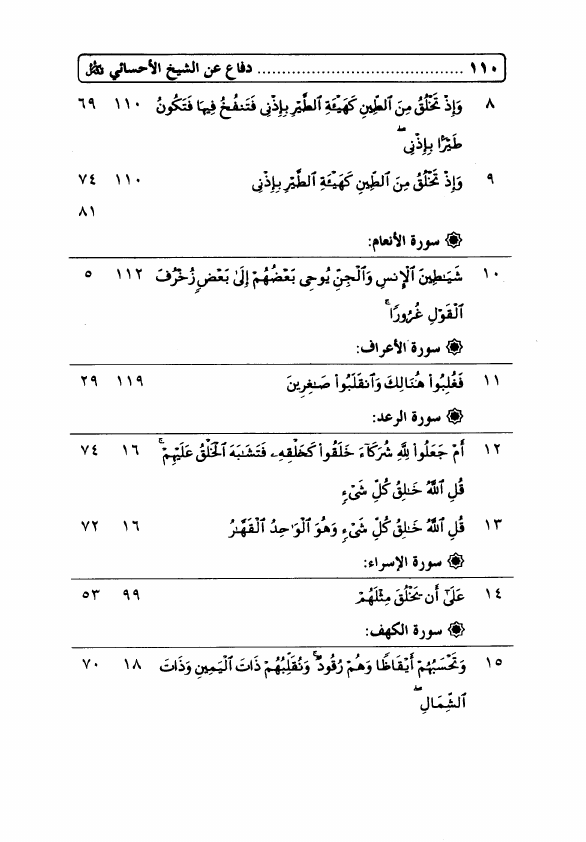 ١١٠ .......................................... دفاع عن الشيخ الأحسائي
٨ وَإِذْ تَخْلُقُ مِنَ ٱلطِّينِ كَهَيْـَٔةِ ٱلطَّيْرِ بِإِذْنِى فَتَنفُخُ فِيهَا فَتَكُونُ ١١٠ ٦٩
طَيْرًۢا بِإِذْنِى ۖ
٩ وَإِذْ تَخْلُقُ مِنَ ٱلطِّينِ كَهَيْـَٔةِ ٱلطَّيْرِ بِإِذْنِى ١١٠ ٧٤
٨١
۞ سورة الأنعام:
١٠ شَيَـٰطِينَ ٱلْإِنسِ وَٱلْجِنِّ يُوحِى بَعْضُهُمْ إِلَىٰ بَعْضٍ زُخْرُفَ ١١٢ ٥
ٱلْقَوْلِ غُرُورًا ۚ
۞ سورة الأعراف:
١١ فَغُلِبُوا۟ هُنَالِكَ وَٱنقَلَبُوا۟ صَـٰغِرِينَ ١١٩ ٢٩
۞ سورة الرعد:
١٢ أَمْ جَعَلُوا۟ لِلَّهِ شُرَكَآءَ خَلَقُوا۟ كَخَلْقِهِۦ فَتَشَـٰبَهَ ٱلْخَلْقُ عَلَيْهِمْ ۚ ١٦ ٧٤
قُلِ ٱللَّهُ خَـٰلِقُ كُلِّ شَىْءٍ
١٣ قُلِ ٱللَّهُ خَـٰلِقُ كُلِّ شَىْءٍ وَهُوَ ٱلْوَٰحِدُ ٱلْقَهَّـٰرُ ١٦ ٧٢
۞ سورة الإسراء:
١٤ عَلَىٰٓ أَن يَخْلُقَ مِثْلَهُمْ ٩٩ ٥٣
۞ سورة الكهف:
١٥ وَتَحْسَبُهُمْ أَيْقَاظًا وَهُمْ رُقُودٌ ۚ وَنُقَلِّبُهُمْ ذَاتَ ٱلْيَمِينِ وَذَاتَ ١٨ ٧٠
ٱلشِّمَالِ ۖ